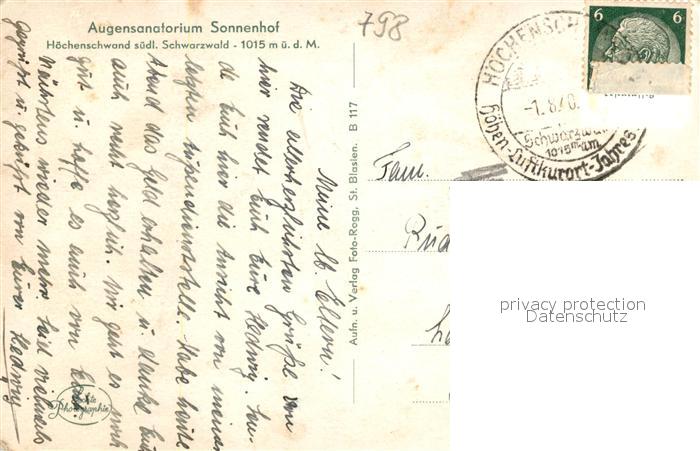 Augensanatorium Sonnenhof
Höchenschwand südl. Schwarzwald - 1015 m ü. d. M.
798
6 6
HÖCHENSCH
-1.8.40.
Schwarzwal
1015 m ü. M
Höhen-Luftkurort-Jahres
Meine lb. Eltern!
Die allerherzlichsten Grüße von
hier sendet Euch Eure Hedwig.
Euch hier die Ansicht von
Dienststelle. Habe heute
Abend das Geld erhalten u. danke Euch
auch recht herzlich. Mir geht es noch
gut u. hoffe es auch von Euch.
Nächstens wieder mehr. Seid vielmals
gegrüßt u. geküsst von Eurer Hedwig
Aufn. u. Verlag Foto-Rogg, St. Blasien. B 117
Echte Photographie
Fam.
privacy protection
Datenschutz